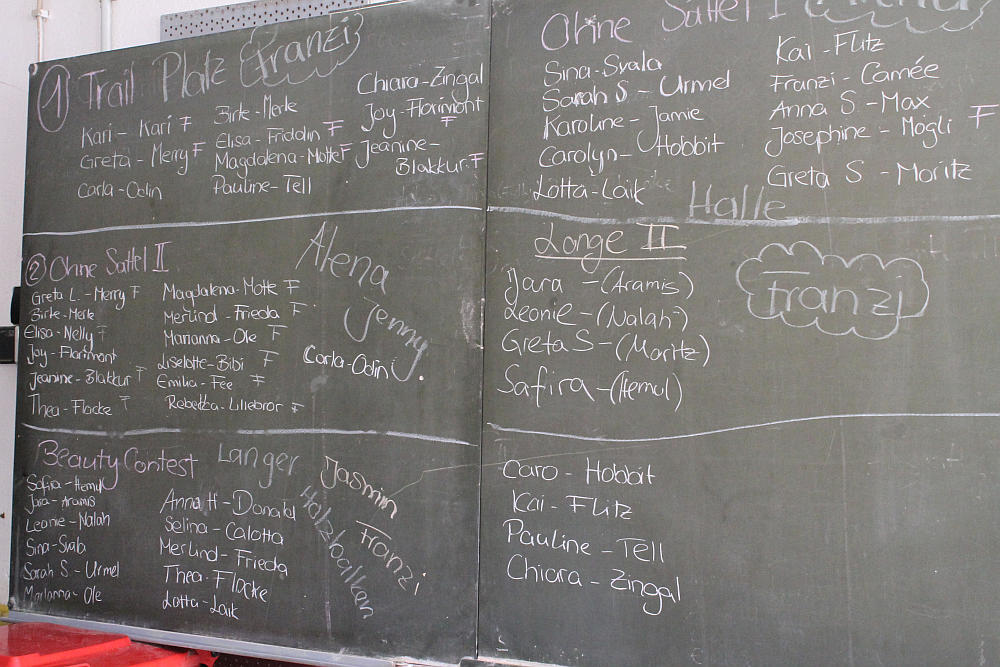 1 Trail Platz Franzi
Kari - Kari F
Greta - Merry F
Carla - Odin
Birke - Merle
Elisa - Friddin F
Magdalena - Motte F
Pauline - Tell
Chiara - Zingal
Joy - Florimont F
Jeanine -
Blakkur F
2 Ohne Sattel II
Greta L. - Merry F
Birke - Merle
Elisa - Nelly F
Joy - Florimont
Jeanine - Blakkur F
Thea - Flocke F
Magdalena - Motte F
Merlind - Frieda F
Marianna - Ole F
Liselotte - Bibi F
Emilia - Fee F
Rebekka - Lillebror F
Alena
Jenny
Carla - Odin
Beauty Contest Langer
Safira - Hemul
Jara - Aramis
Leonie - Nalah
Sina - Svala
Sarah S - Urmel
Marianna - Ole
Anna H - Donald
Selina - Calotta
Merlind - Frieda
Thea - Flocke
Lotta - Laik
Jasmin
Franzi
Holzbalken
Ohne Sattel I
Sina - Svala
Sarah S - Urmel
Karoline - Jamie
Carolyn - Hobbit
Lotta - Laik
Kai - Flitz
Franzi - Camée
Anna S - Max
Josephine - Mögli F
Greta S - Moritz
Halle
Longe II
Jara - (Aramis)
Leonie - (Nalah)
Greta S - (Moritz)
Safira - (Hemul)
Franzi
Caro - Hobbit
Kai - Flitz
Pauline - Tell
Chiara - Zingal